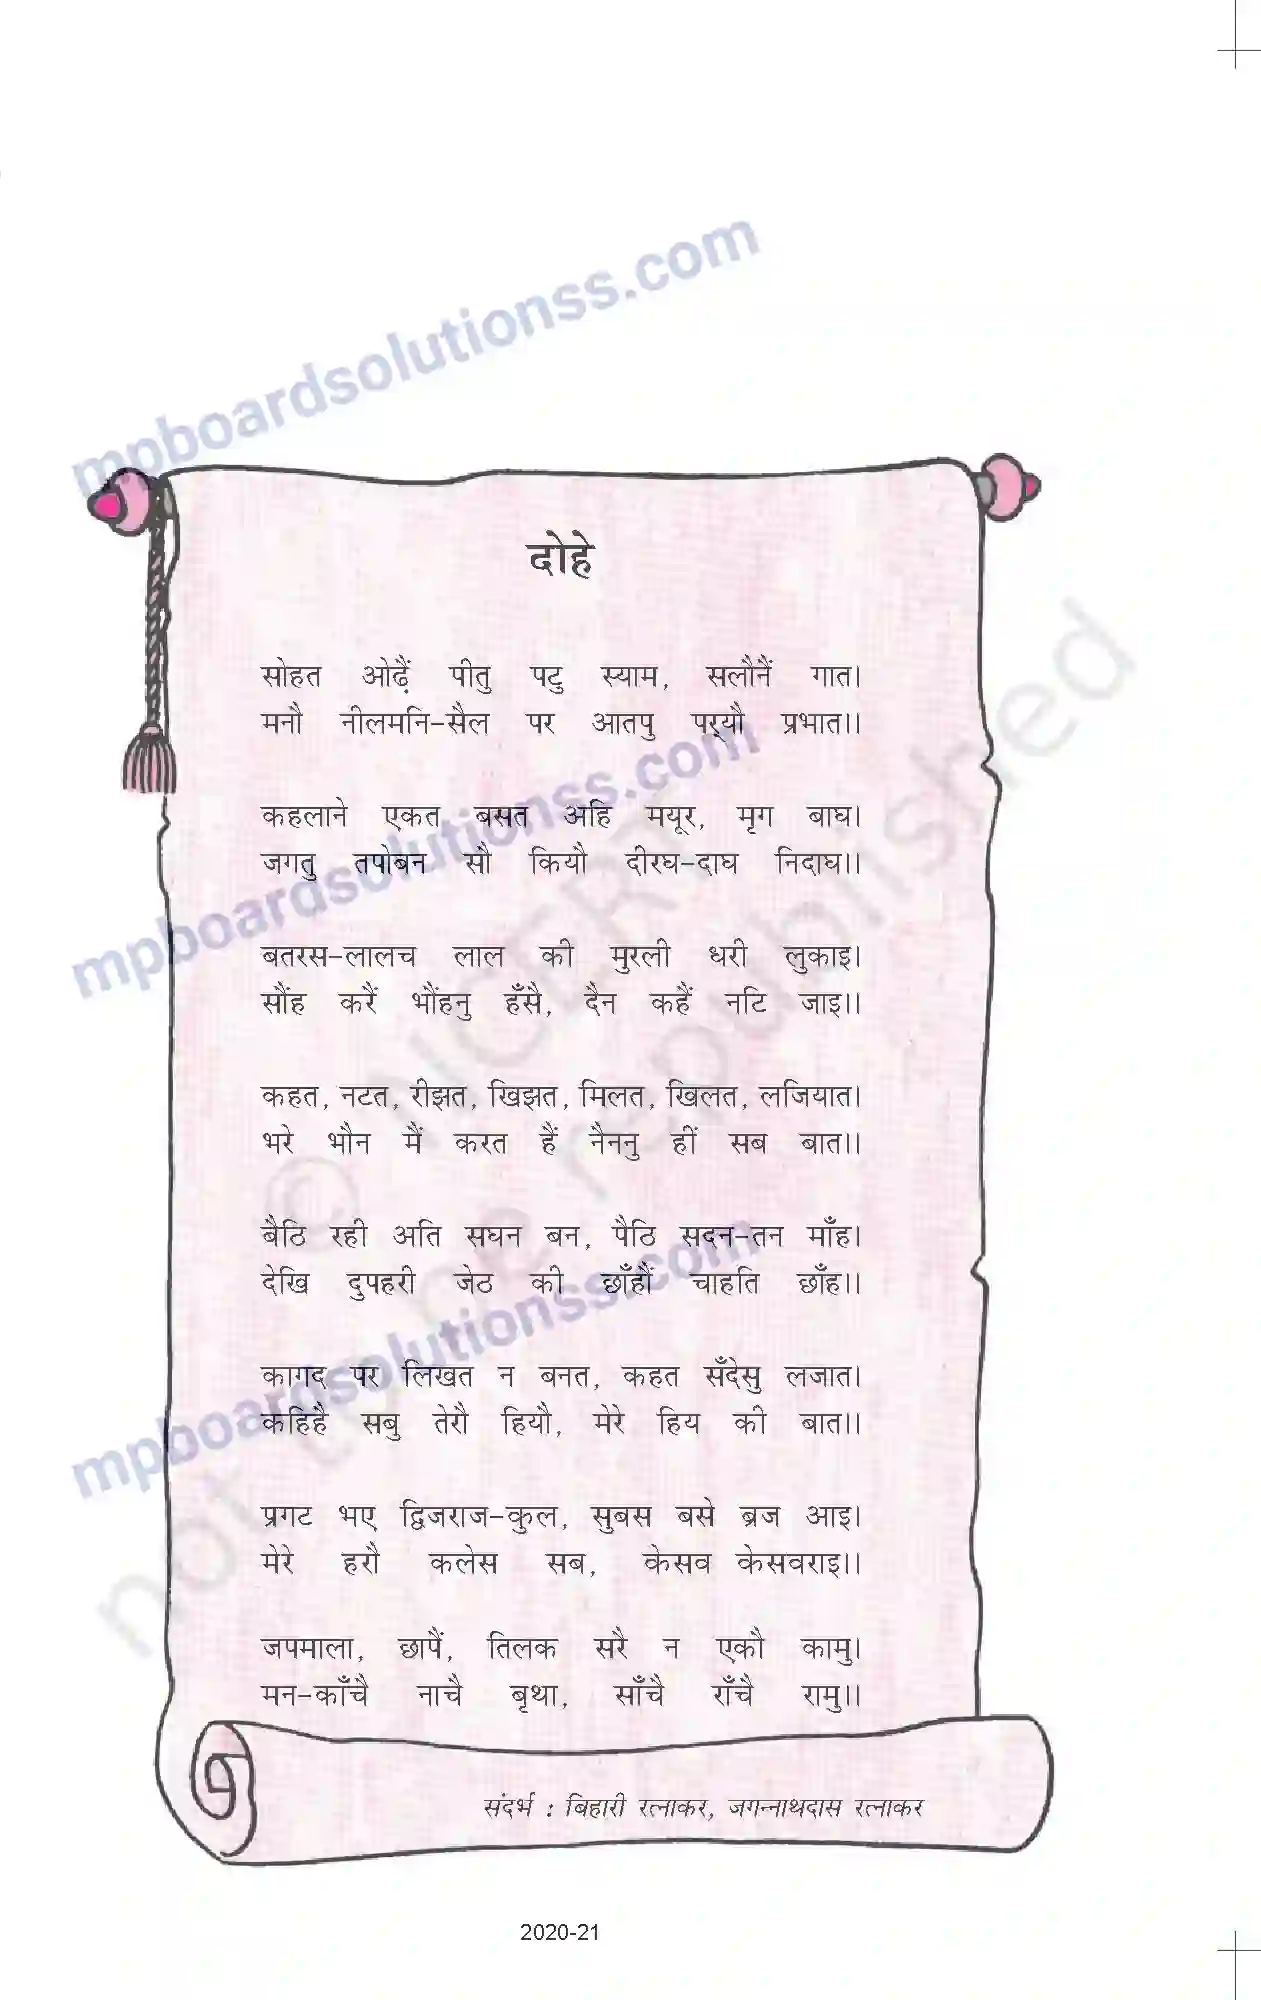 mpboardsolutionss.com
दोहे
सोहत ओढ़ैं पीतु पटु स्याम, सलौनैं गात।
मनौ नीलमनि-सैल पर आतपु पर्‌यौ प्रभात।।
mpboardsolutionss.com
कहलाने एकत बसत अहि मयूर, मृग बाघ।
जगतु तपोबन सौ कियौ दीरघ-दाघ निदाघ।।
बतरस-लालच लाल की मुरली धरी लुकाइ।
सौंह करैं भौंहनु हँसै, दैन कहैं नटि जाइ।।
© NCERT
not to be republished
कहत, नटत, रीझत, खिझत, मिलत, खिलत, लजियात।
भरे भौन मैं करत हैं नैननु हीं सब बात।।
बैठि रही अति सघन बन, पैठि सदन-तन माँह।
देखि दुपहरी जेठ की छाँहौं चाहति छाँह।।
mpboardsolutionss.com
कागद पर लिखत न बनत, कहत सँदेसु लजात।
कहिहै सबु तेरौ हियौ, मेरे हिय की बात।।
प्रगट भए द्विजराज-कुल, सुबस बसे ब्रज आइ।
मेरे हरौ कलेस सब, केसव केसवराइ।।
जपमाला, छापैं, तिलक सरै न एकौ कामु।
मन-काँचै नाचै बृथा, साँचै राँचै रामु।।
संदर्भ : बिहारी रत्नाकर, जगन्नाथदास रत्नाकर
2020-21